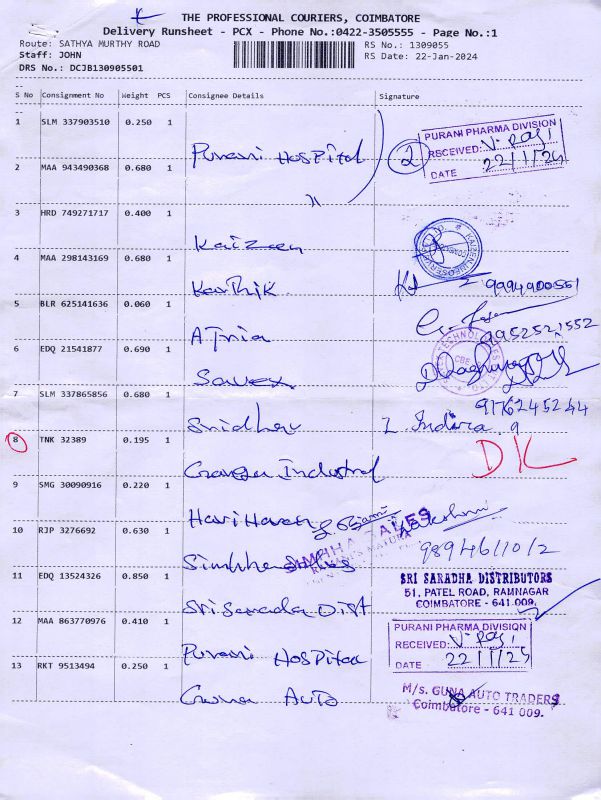 THE PROFESSIONAL COURIERS, COIMBATORE
Delivery Runsheet - PCX - Phone No.:0422-3505555 - Page No.:1
Route: SATHYA MURTHY ROAD
RS No.: 1309055
Staff: JOHN
RS Date: 22-Jan-2024
DRS No.: DCJB130905501
S No Consignment No Weight PCS Consignee Details Signature
1 SLM 337903510 0.250 1 Purani Hospital
2
PURANI PHARMA DIVISION
RECEIVED: V. Raji
DATE 22/1/24
2 MAA 943490368 0.680 1 "
3 HRD 749271717 0.400 1 Kaizen
4 MAA 298143169 0.680 1 Karthik
9994900551
5 BLR 625141636 0.060 1 Atria
9952521552
6 EDQ 21541877 0.690 1 Savex
7 SLM 337865856 0.680 1 Sridhar
9176245244
Indira
8 TNK 32389 0.195 1 Ganga Industrial
DL
9 SMG 30090916 0.220 1 Hari Haran
10 RJP 3276692 0.630 1
9894611012
11 EDQ 13524326 0.850 1 Sri Sarada Dist
SRI SARADHA DISTRIBUTORS
51, PATEL ROAD, RAMNAGAR
COIMBATORE - 641 009.
12 MAA 863770976 0.410 1 Purani Hospital
PURANI PHARMA DIVISION
RECEIVED: V. Raji
DATE 22/1/25
13 RKT 9513494 0.250 1 Guna Auto
M/s. GUNA AUTO TRADERS
Coimbatore - 641 009.